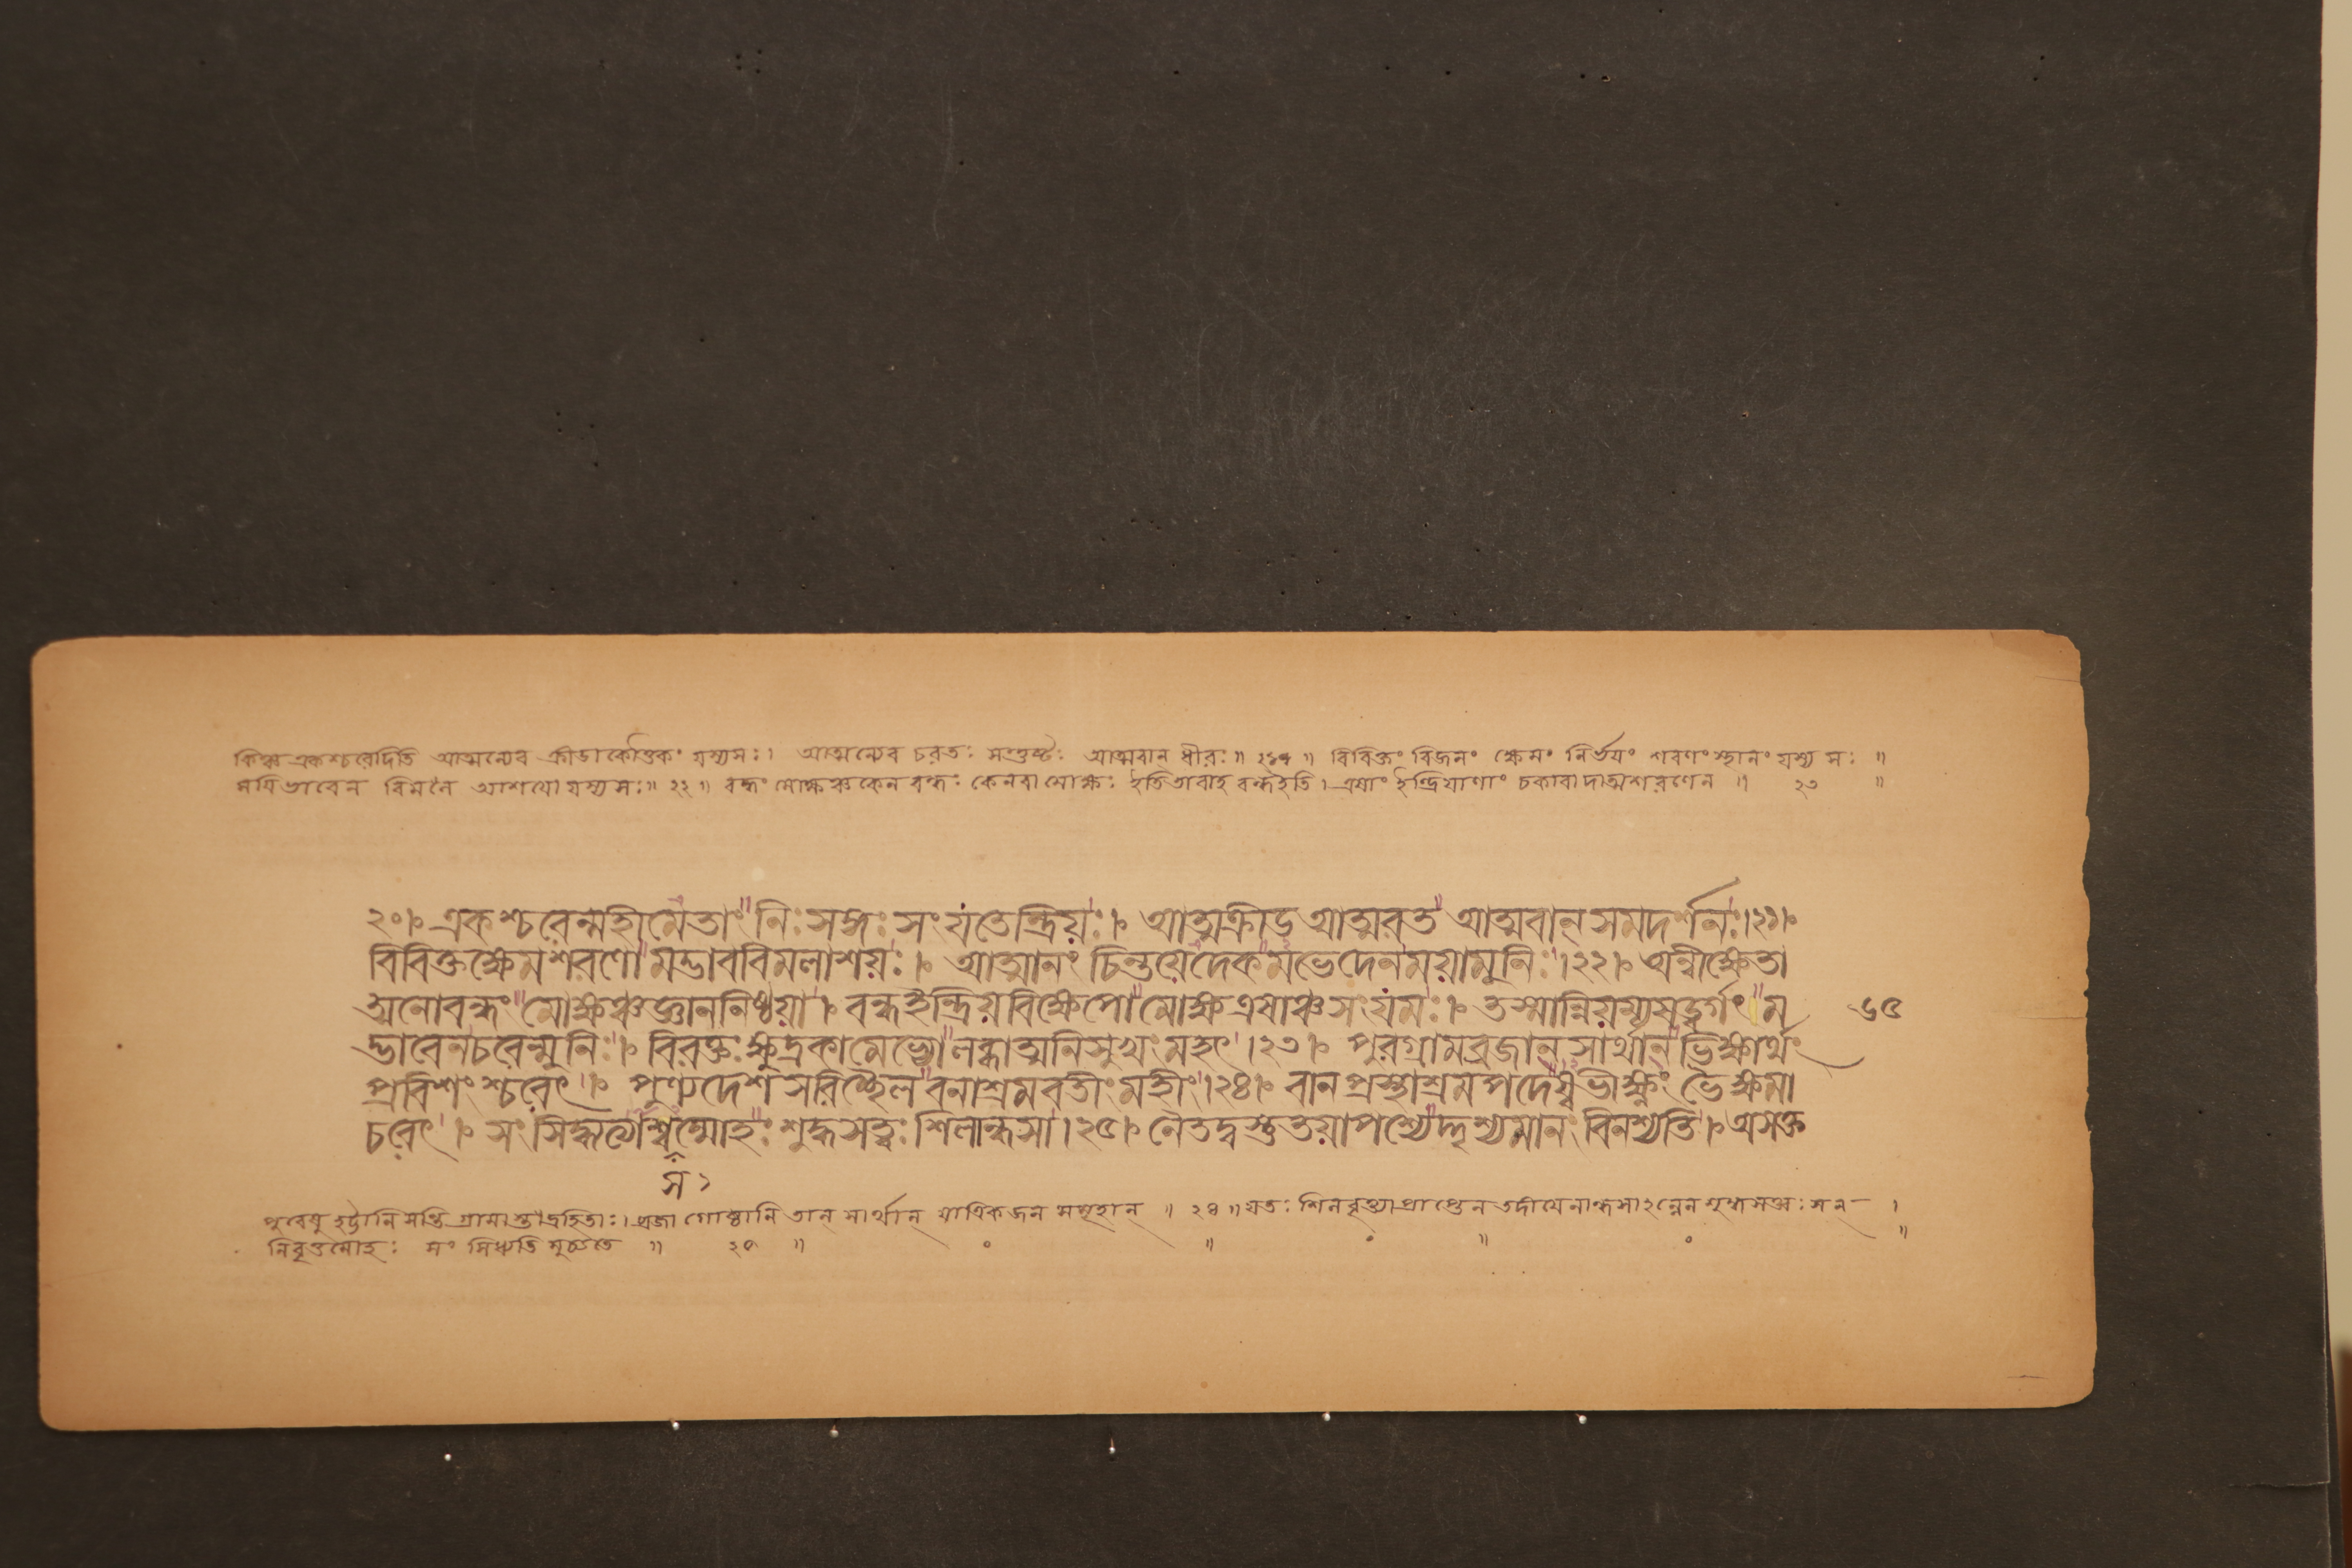 কিঞ্চ একশ্চরেদিতি আত্মন্যেব ক্রীডাকৌতুকং যস্যসঃ। আত্মন্যেব চরতঃ সন্তুষ্টঃ আত্মবান ধীরঃ॥ ২১ ॥ বিবিক্তং বিজনং ক্ষেমং নির্ভয়ং শরণং স্থানং যস্য সঃ ॥
ময়িভাবেন বিমলৈ আশয়ো যস্য সঃ॥ ২২ ॥ বন্ধং মোক্ষঞ্চ কেন বন্ধঃ কেনবা মোক্ষঃ ইতি বন্ধইতি। এষাং ইন্দ্রিয়াণাং চকারাদাত্মশরণেন ॥ ২৩ ॥
২০।৹ একশ্চরেন্মহীমেতাং নিঃসঙ্গঃ সংযতেন্দ্রিয়ঃ।৹ আত্মক্রীড আত্মরত আত্মবান্ সমদর্শনঃ।২১।৹
বিবিক্তক্ষেমশরণো মদ্ভাববিমলাশয়ঃ।৹ আত্মানং চিন্তয়েদেকমভেদেনময়ামুনিঃ।২২।৹ অন্বীক্ষেতা
অনোবন্ধং মোক্ষঞ্চজ্ঞাননিষ্ঠয়া।৹ বন্ধইন্দ্রিয়বিক্ষেপো মোক্ষ এষাঞ্চ সংযমঃ।৹ তস্মান্নিয়ম্যষড়্বর্গং ম ৬৫
দ্ভাবেনচরেন্মুনিঃ।৹ বিরক্তঃ ক্ষুদ্রকামেভ্যো লব্ধাত্মনিসুখং মহৎ।২৩।৹ পুরগ্রামব্রজান্ সার্থান্ ভিক্ষার্থং
প্রবিশংশ্চরেৎ।৹ পুণ্যদেশসরিচ্ছৈলবনাশ্রমবতীং মহীং।২৪।৹ বানপ্রস্থাশ্রমপদেষ্বভীক্ষ্ণং ভৈক্ষমা
চরেৎ।৹ সংসিদ্ধ্যত্যাশ্বসম্মোহঃ শুদ্ধসত্ত্বঃ শিলান্ধসা।২৫।৹ নৈতদ্বস্তুতয়াপশ্যেদ্দৃশ্যমানং বিনশ্যতি।৹ অসক্ত
স ১
পুরেষু হট্টানি সন্তি গ্রামা । ব্রজা গোষ্ঠানি তান্ সার্থান্ যাত্রিকজন সমূহান্ ॥ ২৪ ॥ যতঃ শিলবৃত্ত্যা প্রাপ্তেন তদীয়েনান্ধসা২ন্নেন শুদ্ধসত্ত্বঃ সন্ ।
নিবৃত্তমোহঃ সং সিধ্যতি মুচ্যতে ॥ ২৫ ॥